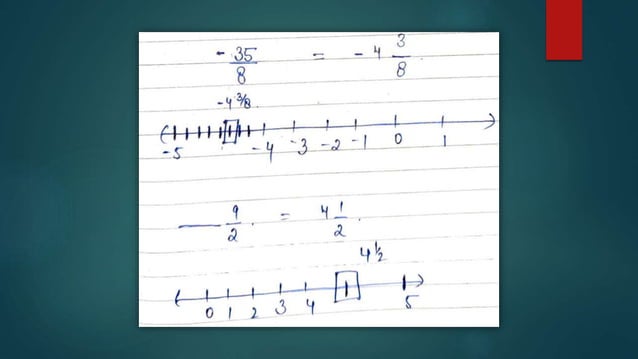 - 35/8 = - 4 3/8
-4 3/8
-5 -4 -3 -2 -1 0 1
— 9/2 = 4 1/2
4 1/2
0 1 2 3 4 5